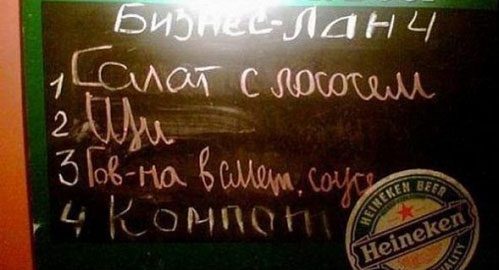 Бизнес-ланч
1 Салат с лососем
2 Щи
3 Гов-на в смет. соусе
4 Компот
HEINEKEN BEER
Heineken
QUALITY